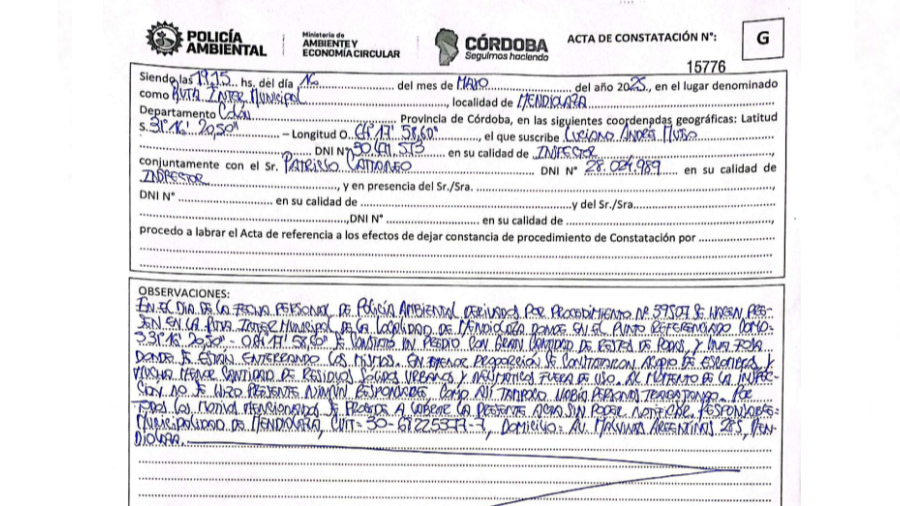 POLICÍA
AMBIENTAL
Ministerio de
AMBIENTE Y
ECONOMÍA CIRCULAR
CÓRDOBA
Seguimos haciendo
ACTA DE CONSTATACIÓN N°:
G
15776
Siendo las 19:15 hs. del día 16 del mes de MAYO del año 2025, en el lugar denominado
como RUTA INTER MUNICIPAL, localidad de MENDIOLAZA
Departamento COLÓN Provincia de Córdoba, en las siguientes coordenadas geográficas: Latitud
S. 31° 16' 20,50" – Longitud O. 64° 17' 58,60" , el que suscribe LUCIANO ANDRÉS
DNI N° en su calidad de INSPECTOR
conjuntamente con el Sr. PATRISSO CATTANEO DNI N° 28.024.989 en su calidad de
INSPECTOR , y en presencia del Sr./Sra.
DNI N° en su calidad de y del Sr./Sra.
,DNI N° en su calidad de
procedo a labrar el Acta de referencia a los efectos de dejar constancia de procedimiento de Constatación por
OBSERVACIONES:
EN EL DIA DE LA FECHA PERSONAL DE POLICÍA AMBIENTAL DERIVADOS POR PROCEDIMIENTO N° 59507 SE HACEN PRE-
SEN EN LA RUTA INTER MUNICIPAL DE LA LOCALIDAD DE MENDIOLAZA DONDE EN EL PUNTO REFERENCIADO COMO
S31° 16' 20,50" - O64° 17' 58,60" SE CONSTATÓ UN PREDIO CON GRAN CANTIDAD DE RESTOS DE PODAS, Y UNA FOSA
DONDE SE ESTÁN ENTERRANDO LOS MISMOS. EN MENOR PROPORCIÓN SE CONSTATARON ACOPIO DE ESCOMBROS Y
MUCHA MENOR CANTIDAD DE RESIDUOS SOLIDOS URBANOS Y NEUMÁTICOS FUERA DE USO. AL MOMENTO DE LA INSPEC-
CION NO SE HIZO PRESENTE NINGÚN RESPONSABLE, COMO ASÍ TAMPOCO HABÍA PERSONAS TRABAJANDO. POR
TODOS LOS MOTIVOS MENCIONADOS SE PROCEDE A LABRAR LA PRESENTE ACTA SIN PODER NOTIFICAR. RESPONSABLE:
MUNICIPALIDAD DE MENDIOLAZA, CUIT: DOMICILIO: AV. MALVINAS ARGENTINAS 285, MEN-
DIOLAZA.